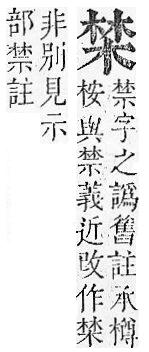 禁字之譌舊註承樽
桉與禁義近改作
非別見示
部禁註